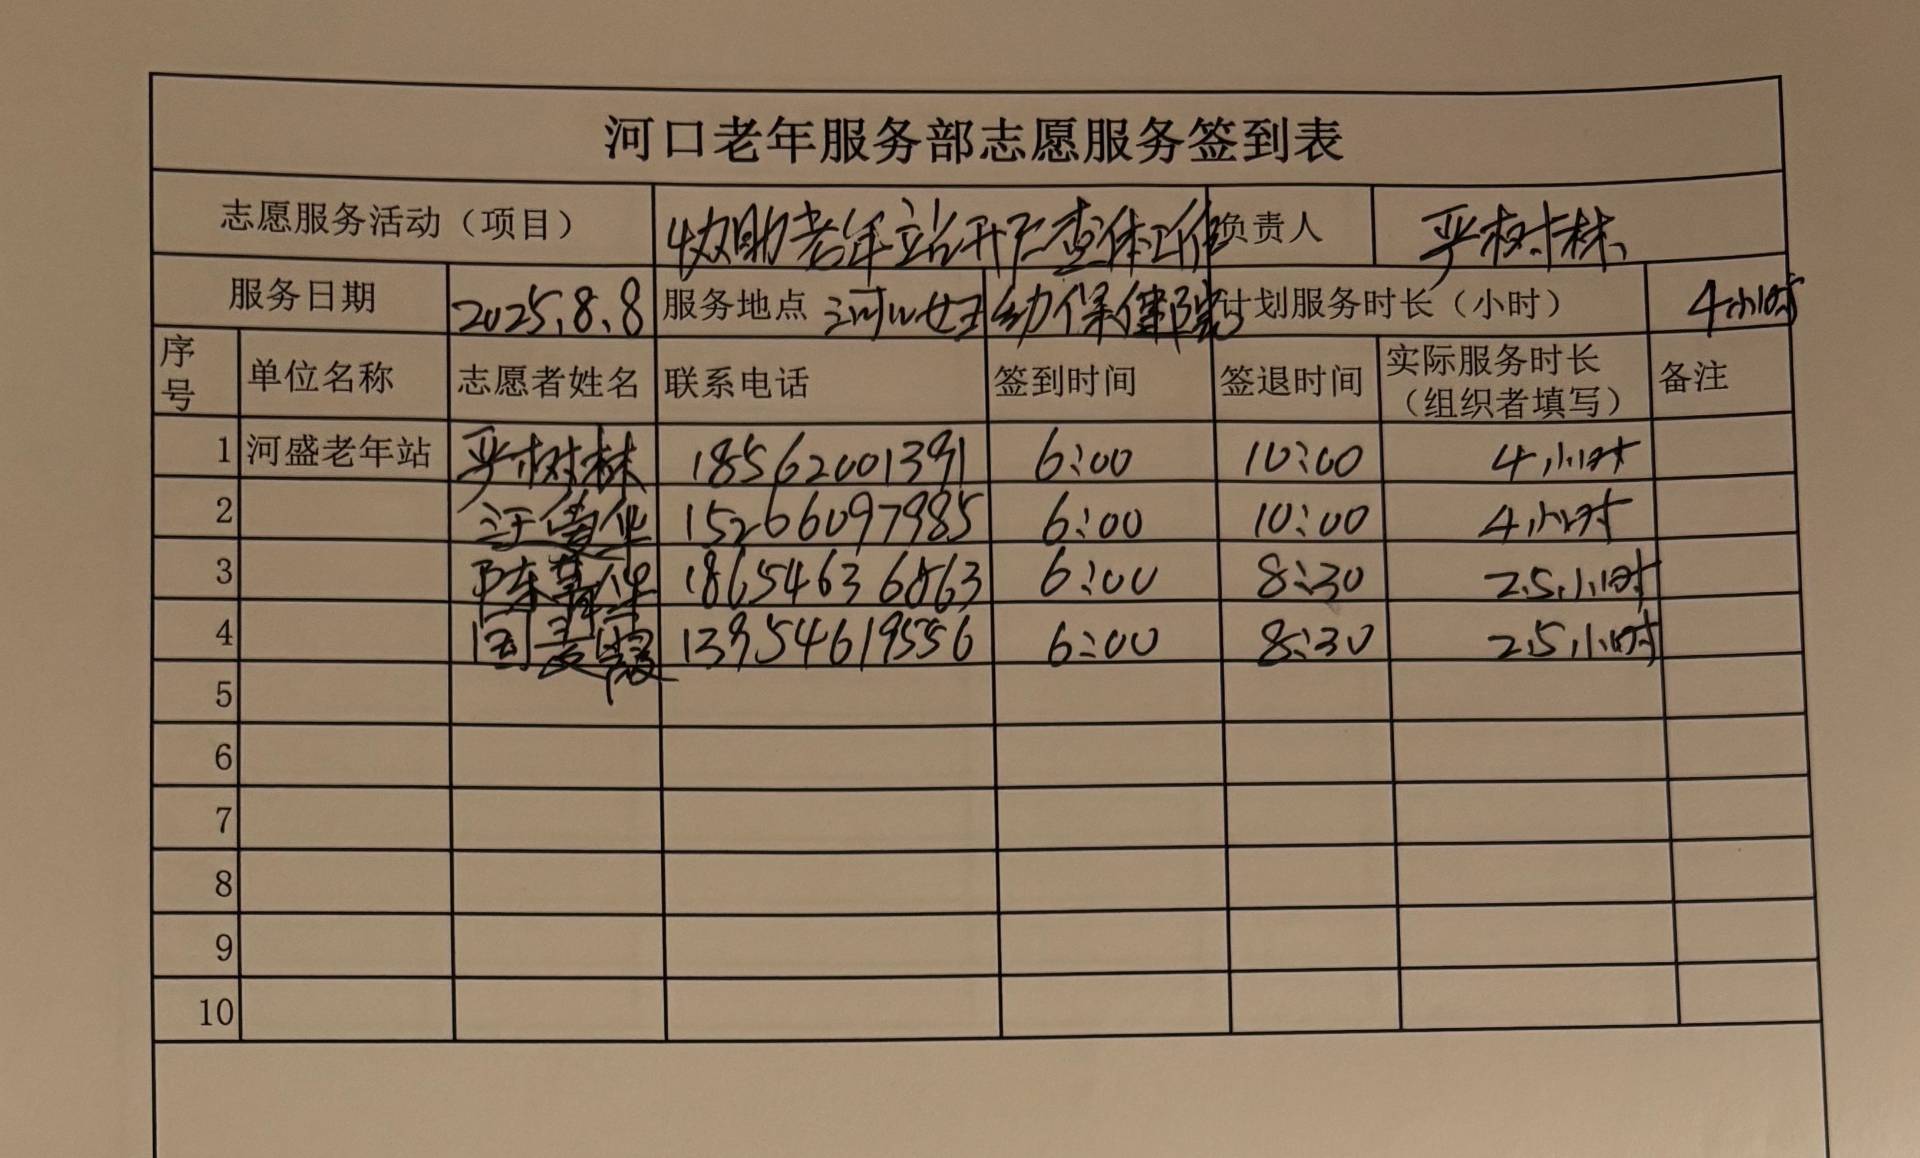 河口老年服务部志愿服务签到表
志愿服务活动（项目） 协助老年站开广查体工作 负责人 严树林
服务日期 2025.8.8 服务地点 河口妇幼保健院 计划服务时长（小时） 4小时
序号 单位名称 志愿者姓名 联系电话 签到时间 签退时间 实际服务时长（组织者填写） 备注
1 河盛老年站 严树林 18562001391 6:00 10:00 4小时
2 15266097985 6:00 10:00 4小时
3 18654636863 6:00 8:30 2.5小时
4 13954619556 6:00 8:30 2.5小时
5
6
7
8
9
10